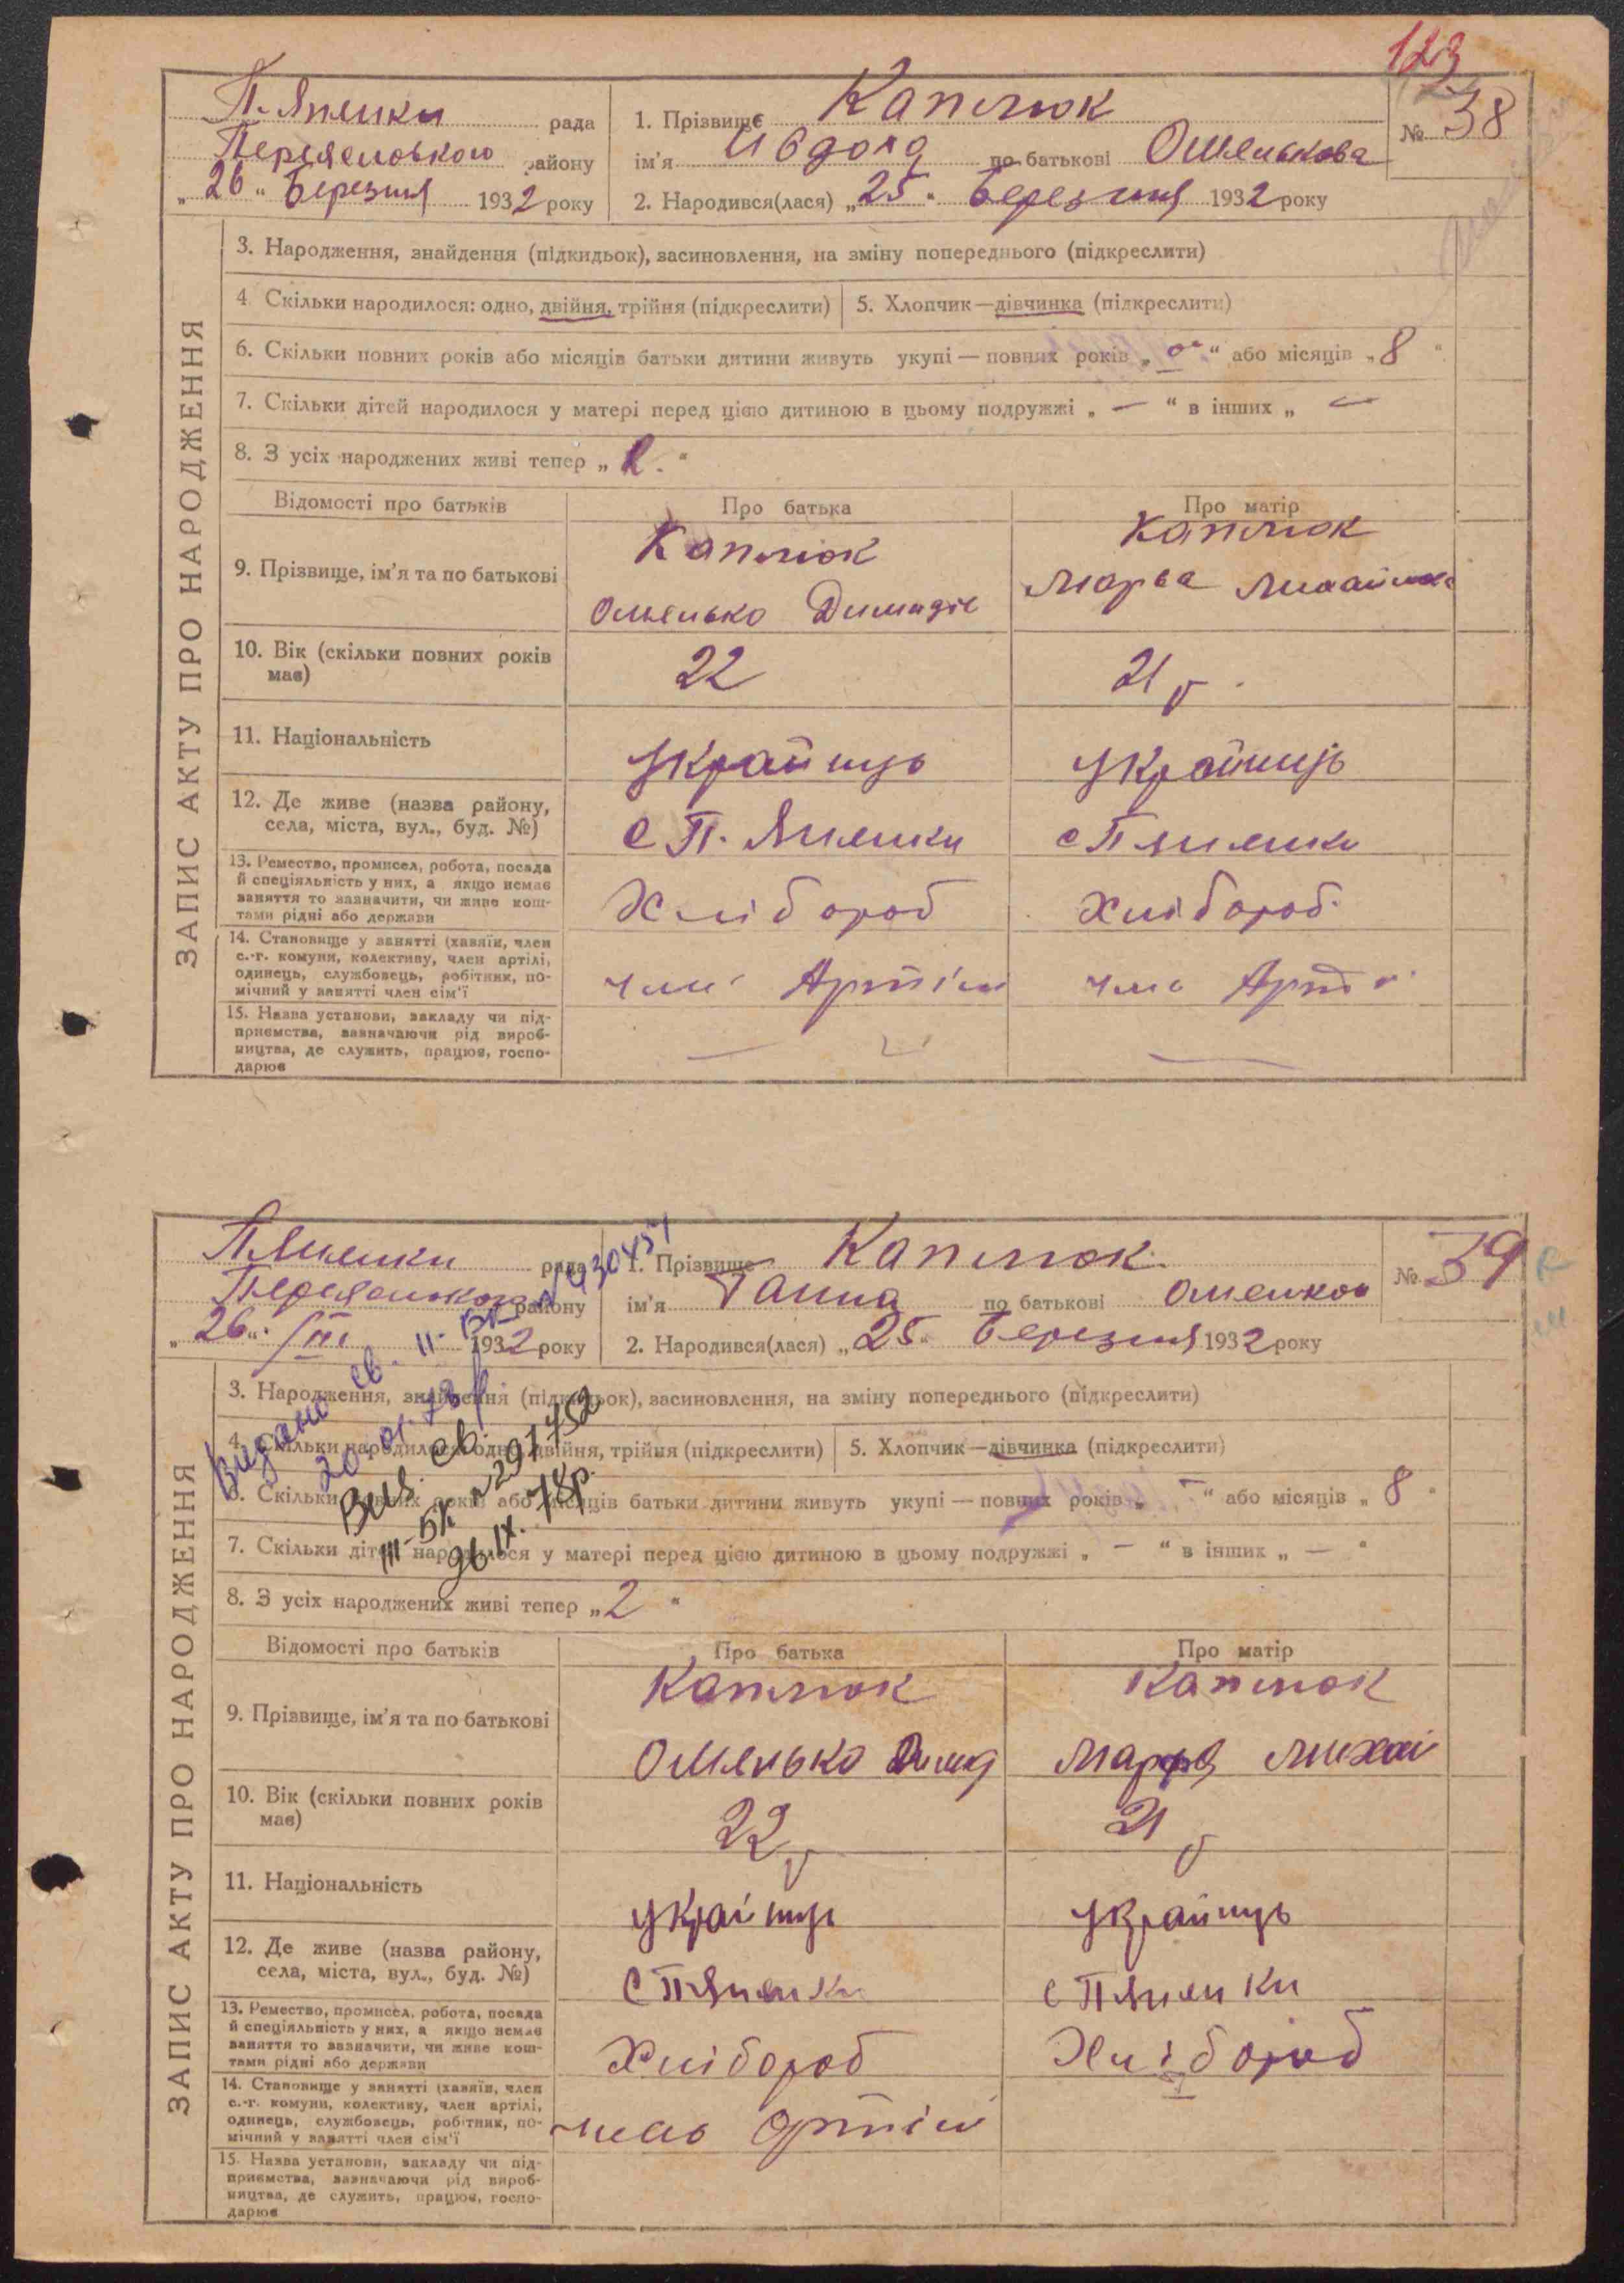 123
П. Яненки рада
Переяславського району
„26“ Березня 1932 року
1. Прізвище Каплюк
ім'я Ивдокя по батькові Омелькова
№ 38
2. Народився(лася) „25“ Березня 1932 року
ЗАПИС АКТУ ПРО НАРОДЖЕННЯ
3. Народження, знайдення (підкидьок), засиновлення, на зміну попереднього (підкреслити)
4. Скільки народилося: одно, двійня, трійня (підкреслити)
5. Хлопчик—дівчинка (підкреслити)
6. Скільки повних років або місяців батьки дитини живуть укупі — повних років „ “ або місяців „8“
7. Скільки дітей народилося у матері перед цією дитиною в цьому подружжі „ — “ в інших „ —
8. З усіх народжених живі тепер „2.“
Відомості про батьків Про батька Про матір
9. Прізвище, ім'я та по батькові
Каплюк Каплюк
Омелько Демидів Марва
10. Вік (скільки повних років має)
22 21
11. Національність
Українць Українць
12. Де живе (назва району, села, міста, вул., буд. №)
с П. Яненки с П Яненки
13. Ремество, промисел, робота, посада й спеціяльність у них, а якщо немає заняття то зазначити, чи живе коштами рідні або держави
Хлібороб Хлібороб
14. Становище у занятті (хазяїн, член с.-г. комуни, колективу, член артілі, одинець, службовець, робітник, помічний у занятті член сім'ї
член Артіли член Арті
15. Назва установи, закладу чи підприємства, зазначаючи рід виробництва, де служить, працює, господарює
— —
П Яненки рада
району
„26“ III 1932 року
1. Прізвище Каплюк
ім'я Ганна по батькові Омелков
№ 39
2. Народився(лася) „25“ Березня 1932 року
ЗАПИС АКТУ ПРО НАРОДЖЕННЯ
3. Народження, знайдення (підкидьок), засиновлення, на зміну попереднього (підкреслити)
4. Скільки народилося: одно, двійня, трійня (підкреслити)
5. Хлопчик—дівчинка (підкреслити)
6. Скільки повних років або місяців батьки дитини живуть укупі — повних років „ — “ або місяців „8“
7. Скільки дітей народилося у матері перед цією дитиною в цьому подружжі „ — “ в інших „ — “
8. З усіх народжених живі тепер „2“
Видано св. II-БК
20.01.78р
Вид. св.
III-БК №297752
26.IX.78р.
Відомості про батьків Про батька Про матір
9. Прізвище, ім'я та по батькові
Каплюк Каплюк
Омелько Димид Марфа Михай
10. Вік (скільки повних років має)
22 21
11. Національність
українць українць
12. Де живе (назва району, села, міста, вул., буд. №)
с П Яненки с П Яненки
13. Ремество, промисел, робота, посада й спеціяльність у них, а якщо немає заняття то зазначити, чи живе коштами рідні або держави
Хлібороб Хлібороб
14. Становище у занятті (хазяїн, член с.-г. комуни, колективу, член артілі, одинець, службовець, робітник, помічний у занятті член сім'ї
член артілі
15. Назва установи, закладу чи підприємства, зазначаючи рід виробництва, де служить, працює, господарює